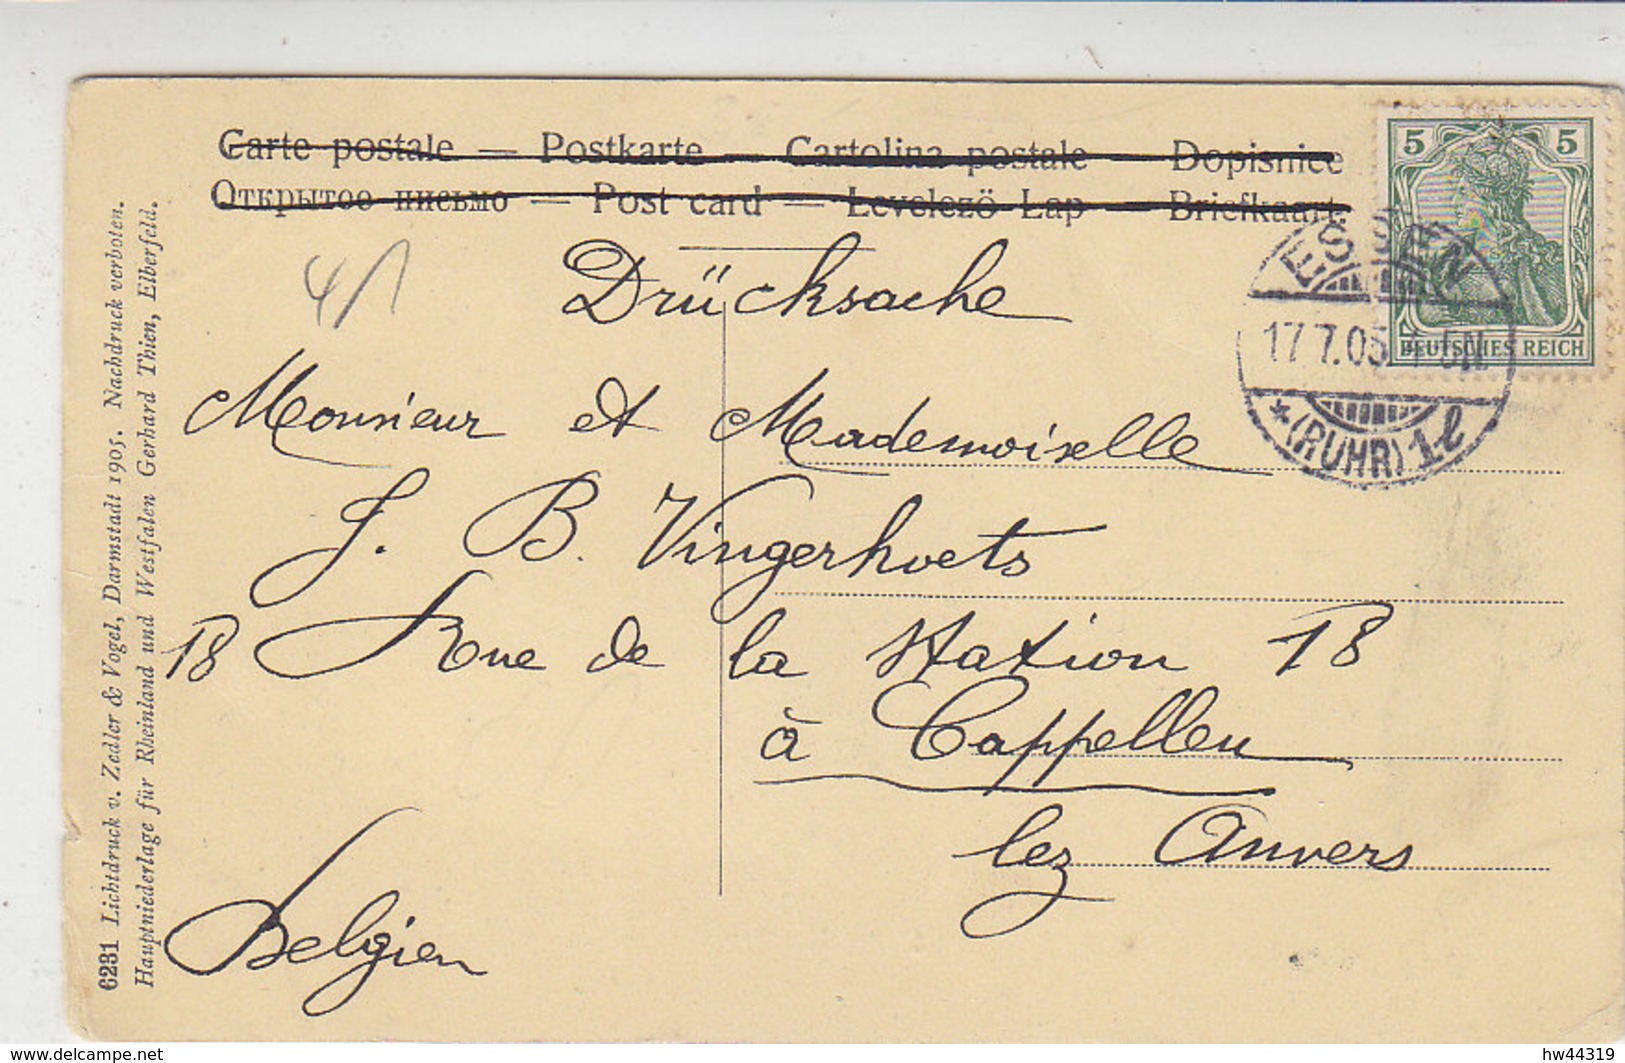 Carte postale — Postkarte — Cartolina postale — Dopisnice
Открытое письмо — Post card — Levelező Lap — Briefkaart
5 5
DEUTSCHES REICH
ESSEN
17.7.05
*(RUHR) 1l
Drücksache
Monsieur et Mademoiselle
J. B. Vingerhoets
18 Rue de la Station 18
à Cappellen
lez Anvers
Belgien
6231 Lichtdruck v. Zedler & Vogel, Darmstadt 1905. Nachdruck verboten.
Hauptniederlage für Rheinland und Westfalen Gerhard Thien, Elberfeld.
www.delcampe.net
hw44319